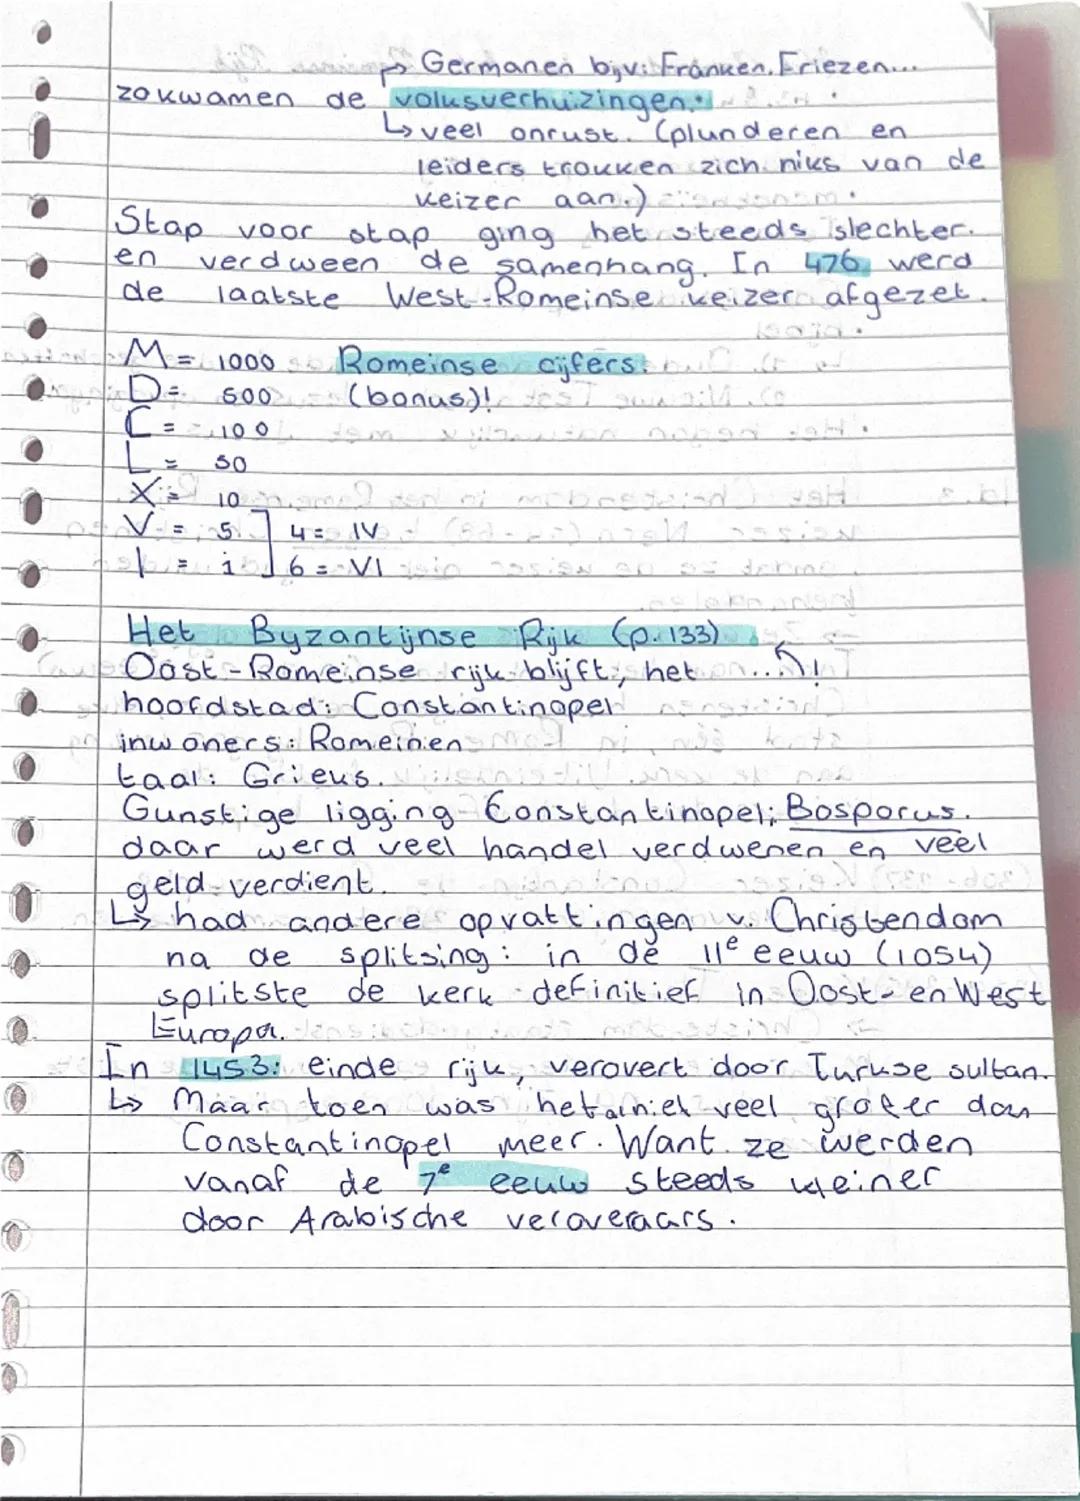 ↳ Germanen bijv: Franken, Friezen...
zo kwamen de volksverhuizingen.
↳ veel onrust. (plunderen en
leiders trokken zich niks van de
keizer aan.)
Stap voor stap ging het steeds slechter.
en verdween de samenhang. In 476 werd
de laatste West-Romeinse keizer afgezet.
M = 1000 Romeinse cijfers:
D = 500 (bonus)!
C = 100
L = 50
X = 10
V = 5 ] 4 = IV
I = 1 ] 6 = VI
Het Byzantijnse Rijk (p. 133)
Oost-Romeinse rijk blijft, het ...↑!
hoofdstad: Constantinopel
inwoners: Romeinen
taal: Grieks.
Gunstige ligging Constantinopel; Bosporus.
daar werd veel handel verdwenen en veel
geld verdient.
↳ had andere opvattingen v. Christendom
na de splitsing: in de 11e eeuw (1054)
splitste de kerk definitief in Oost- en West
Europa.
In 1453: einde rijk, verovert door Turkse sultan.
↳ Maar toen was het al niet veel groter dan
Constantinopel meer. Want ze werden
vanaf de 7e eeuw steeds kleiner
door Arabische veroveraars.